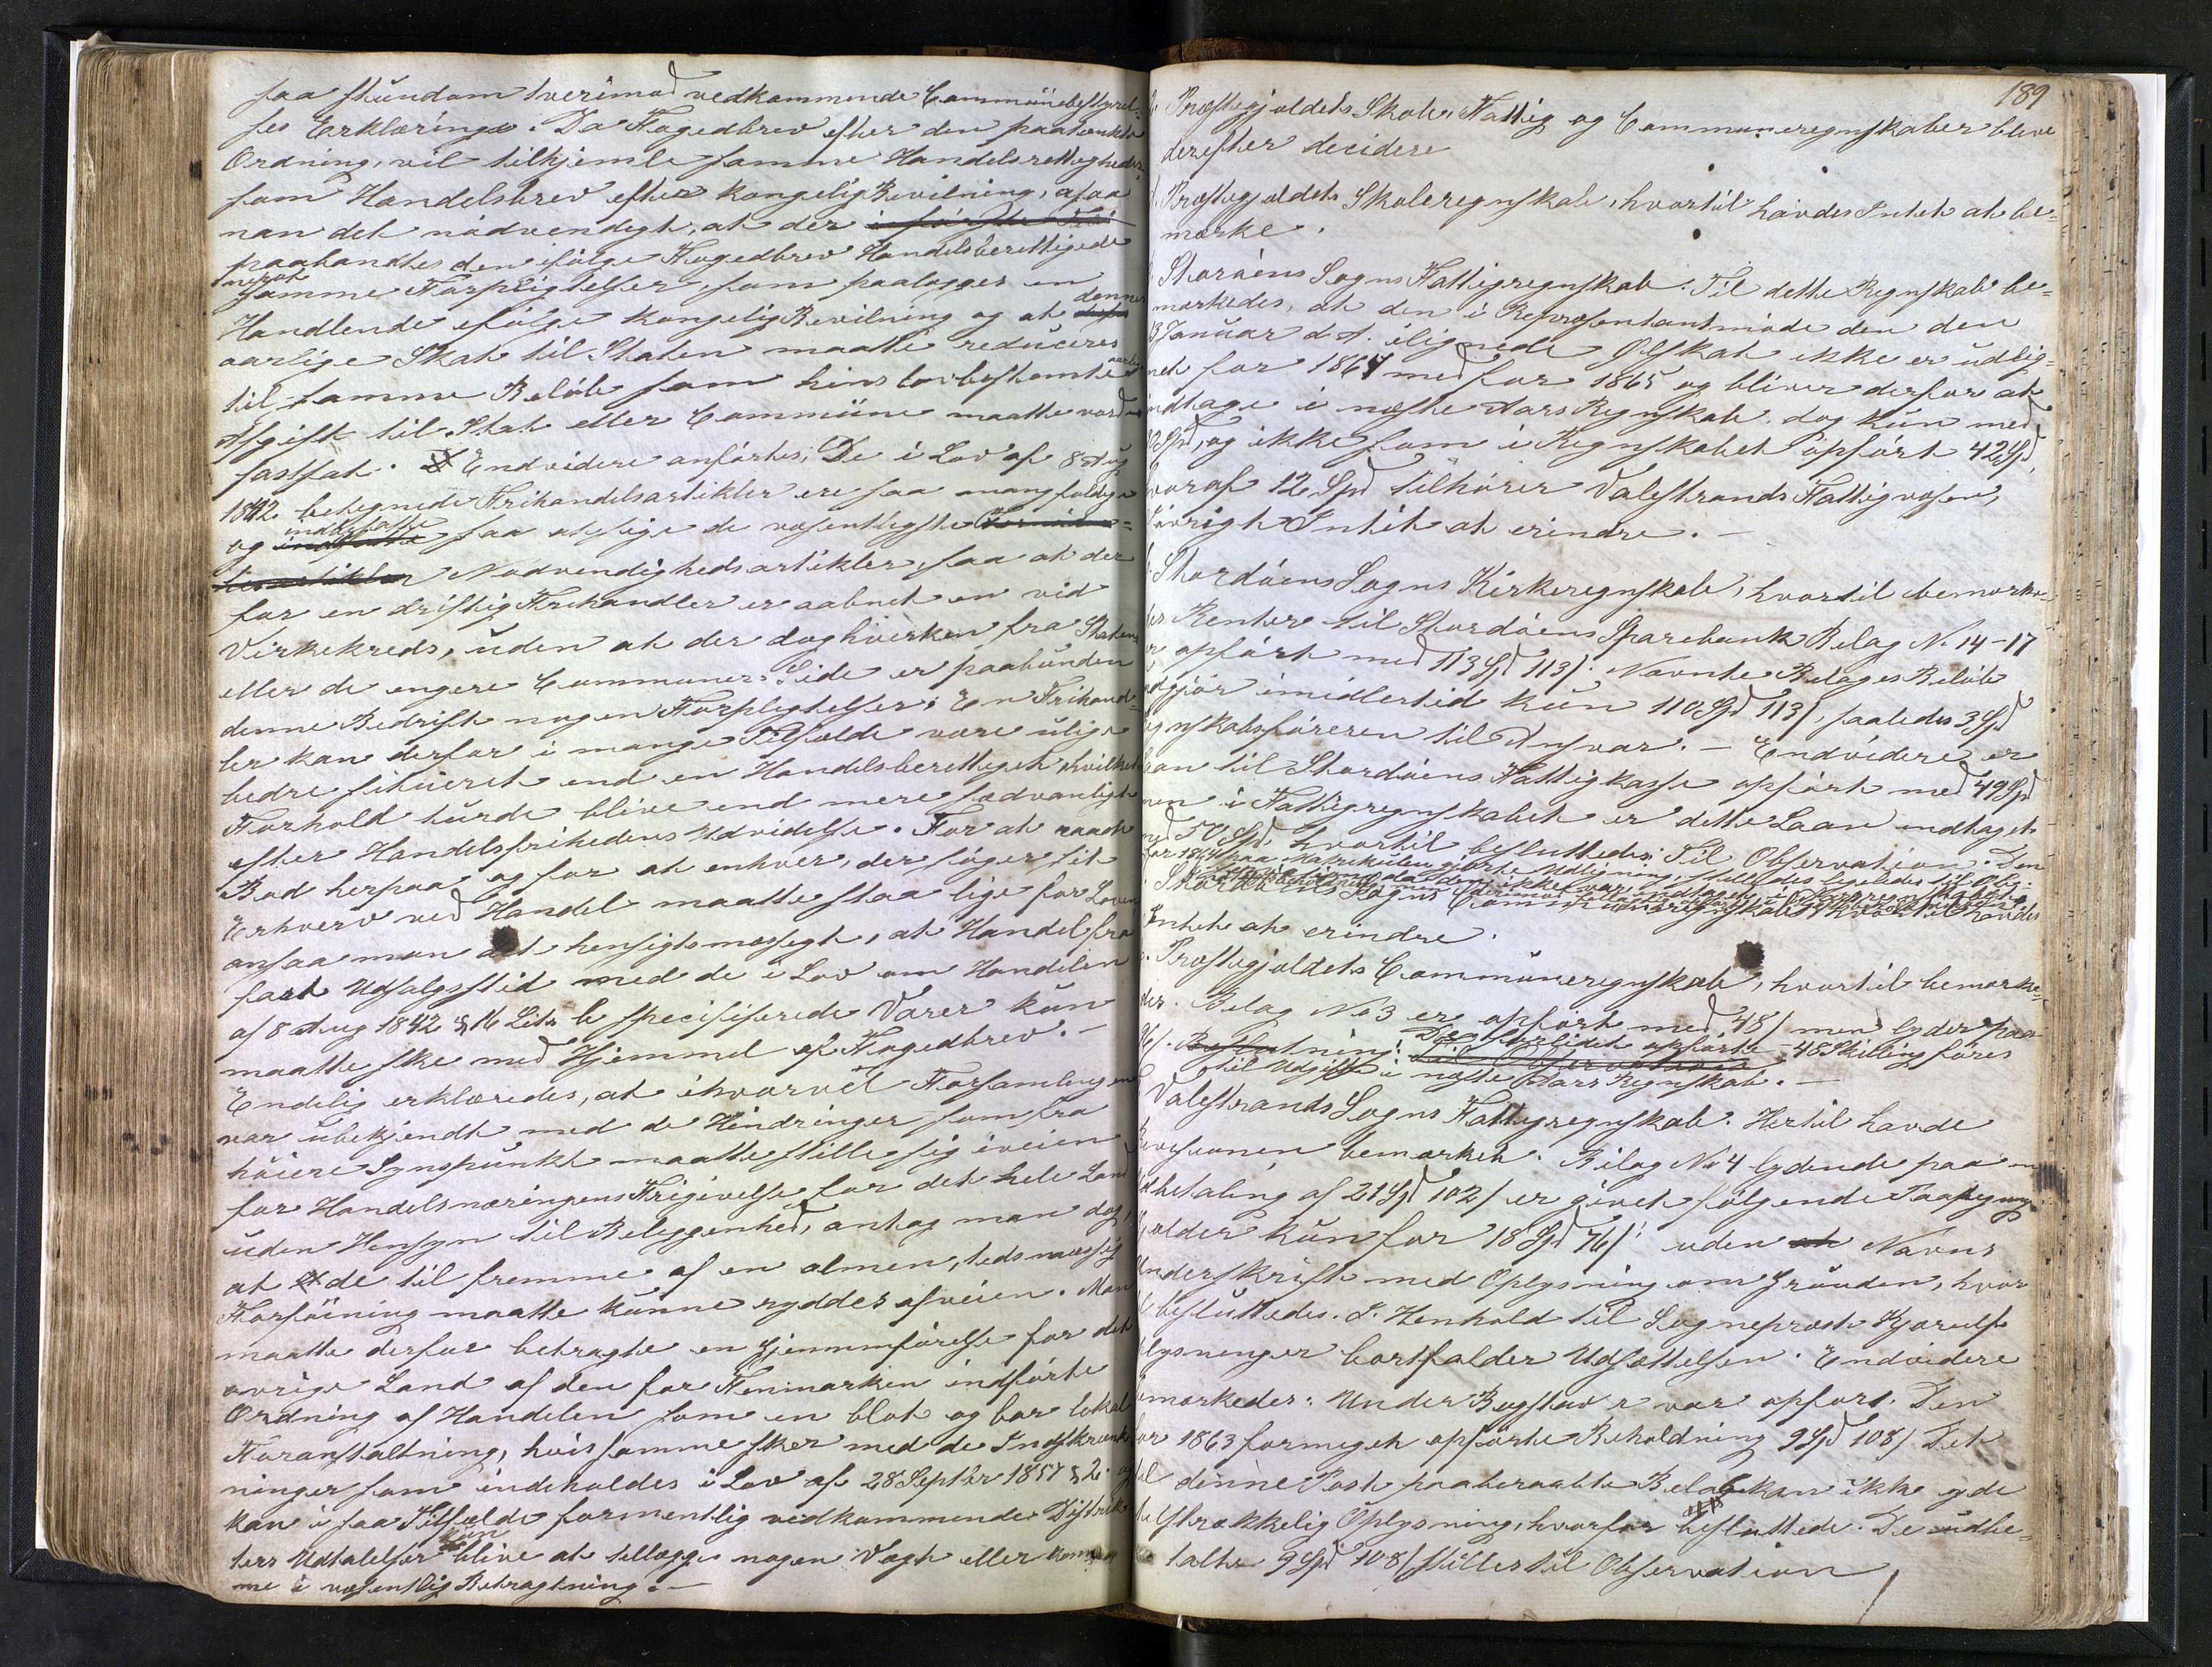 saa stundom tverimod vedkommende Communebestyrel-
ses Erklæringe. Da Fogedbrev efter den paatænkte
Ordning, vil tilkjemle samme Handelsrettigheder
som Handelsbrev efter kongelig Bevilning, ansaa
man det nødvendigt, at der
paabandtes den ifølge Fogedbrev Handelsberettigede
noget
samme Forpligtelser, som paalægges en
Handlende ifølge kongelig Bevilning og at dennes
aarlige Skat til Staten maatte reduceres
til samme Beløb som hins lovbestemte aarlige
Afgift til Stat eller Commune maatte vorde
fastsat. Endvidere anførtes: De i Lov af 8 Aug
1842 betegnede Frihandelsartikler ere saa mangfoldige
og indbefatte saa atsige de væsentligste
Nødvendighedsartikler, saa at der
for en driftig Frihandler er aabnet en vid
Virkekreds, uden at der dog hverken fra Statens
eller de engere Communers Side er paabunden
denne Bedrift nogen Forpligtelser; En Frihand-
ler kan derfor i mange Tilfælde være ulige
bedre situeret end en Handelsberettiget hvilket
Forhold turde blive end mere sædvanligt
efter Handelsfrihedens Udvidelse. For at raade
Bod herpaa og for at enhver, der søger sit
Erhverv ved Handel maatte staa lige for Loven
ansaa man det hensigtsmæssigt, at Handel fra
fast Udsalgssted med de i Lov om Handelen
af 8 Aug 1842 § 16 Litr b specifiserede Varer kun
maatte ske med Hjemmel af Fogedbrev. –
Endelig erklæredes, at ihvorvel Forsamlingen
var ubekjendt med de Hindringer som fra
høiere Synspunkt maatte stille sig iveien
for Handelsnæringens Frigivelse for det hele Land
uden Hensyn til Beliggenhed, antog man dog,
at de til fremme af en almen, tidsmæssig
Forføining maatte kunne ryddes afveien. Man
maatte derfor betragte en Gjennemførelse for det
øvrige Land af den for Finmarken indførte
Ordning af Handelen som en blot og bar lokal
Foranstaltning, hvis samme sker med de Indskrænk
ninger som indeholdes i Lov af 28 Septbr 1857 § 2. og
kan i saa Tilfælde formentlig vedkommende Distrik
ters Udtalelser kun blive at tillægge nogen Vægt eller komme
me i væsentlig Betragtning. –
189
Præstegjældets Skole, Fattig og Communeregnskaber bleve
derefter decidere
Præstegjældets Skoleregnskab, hvortil havdes Intet at be-
mærke.
Storøens Sogns Fattigregnskab. Til dette Regnskab be-
mærkedes, at den i Repræsentantmøde den den
13 Januar d. A. ilignede Ølskat ikke er udlig-
net for 1864 med for 1865 og bliver derfor at
indtage i næste Aars Regnskab, dog kun med
Spd, og ikke som i Regnskabet opført 42 Spd,
hvoraf 12 Spd tilhører Valestrands Fattigvæsen,
Iøvrigt Intet at erindre. –
Stordøens Sogns Kirkeregnskab, hvortil bemærke-
des Renter til Stordøens Sparebank Bilag N. 14–17
er opført med 113 Spd 113 /. Nævnte Bilages Beløb
udgjør imidlertid kun 110 Spd 113 /, saaledes 3 Spd
Regnskabsføreren til Ansvar. – Endvidere er
Laan til Stordøens Fattigkasse opført med 49 Spd
men i Fattigregnskabet er dette Laan indtaget
med 50 Spd hvortil besluttedes: Til Observation. Den
for 1864 paa Matrikulen gjorte Udligning, stilledes ligeledes til Obser-
Sogns Communeregnskab, hvortil havdes
Intet at erindre.
Præstegjældets Communeregnskab, hvortil bemærke-
des. Bilag No 3 er opført med 48 / men lyder paa
96 /. Beslutning: De forlidet opførte 48 Skilling føres
til Udgift i næste Aars Regnskab. –
Valestrands Sogns Fattigregnskab. Hertil havde
Revisionen bemærket. Bilag No 4 lydende paa en
Udbetaling af 21 Spd 102 / er givet følgende Paategning
Gjælder kun for 18 Spd 76 / uden Navns
Underskrift med Oplysning om Grunden, hvor
til besluttedes. I Henhold til Sogneprest Kjerulfs
Oplysninger bortfalder Udsættelsen. Endvidere
bemærkedes: Under Bogstav r var opført. Den
for 1863 formeget opførte Beholdning 9 Spd 108 / Det
til denne Post paaberaabte Bilag kan ikke yde
tilstrækkelig Oplysning, hvorfor besluttede. De udbe-
talte 9 Spd 108 / stilles til Observation